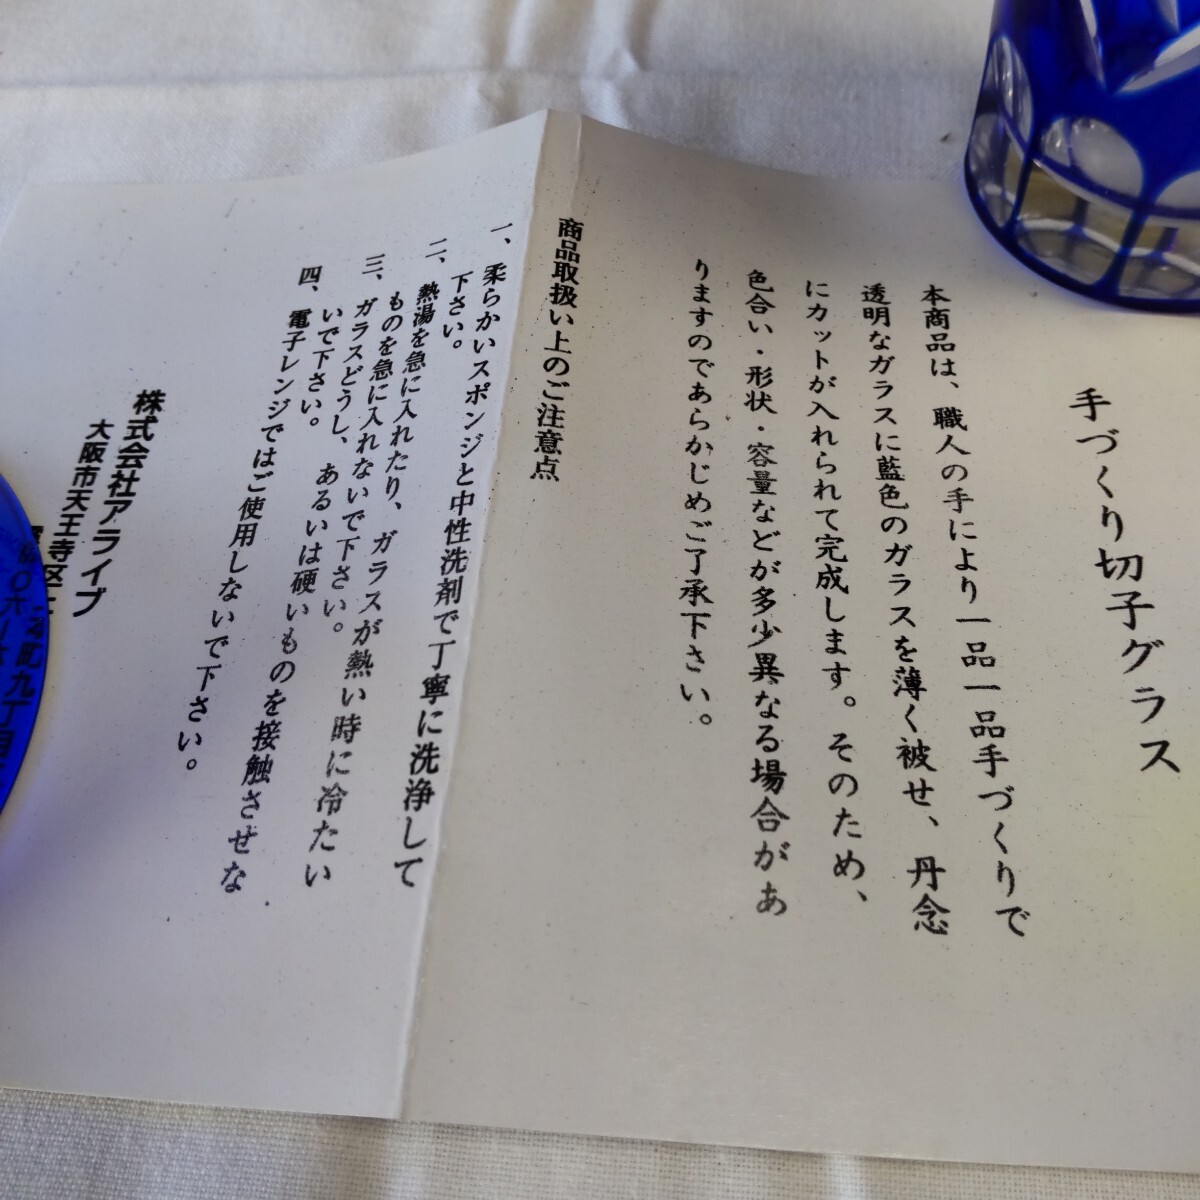 手づくり切子グラス
本商品は、職人の手により一品一品手づくりで
透明なガラスに藍色のガラスを薄く被せ、丹念
にカットが入れられて完成します。そのため、
色合い・形状・容量などが多少異なる場合があ
りますのであらかじめご了承下さい。
商品取扱い上のご注意点
一、柔らかいスポンジと中性洗剤で丁寧に洗浄して
下さい。
二、熱湯を急に入れたり、ガラスが熱い時に冷たい
ものを急に入れないで下さい。
三、ガラスどうし、あるいは硬いものを接触させな
いで下さい。
四、電子レンジではご使用しないで下さい。
株式会社アライブ
大阪市天王寺区上
町九丁目